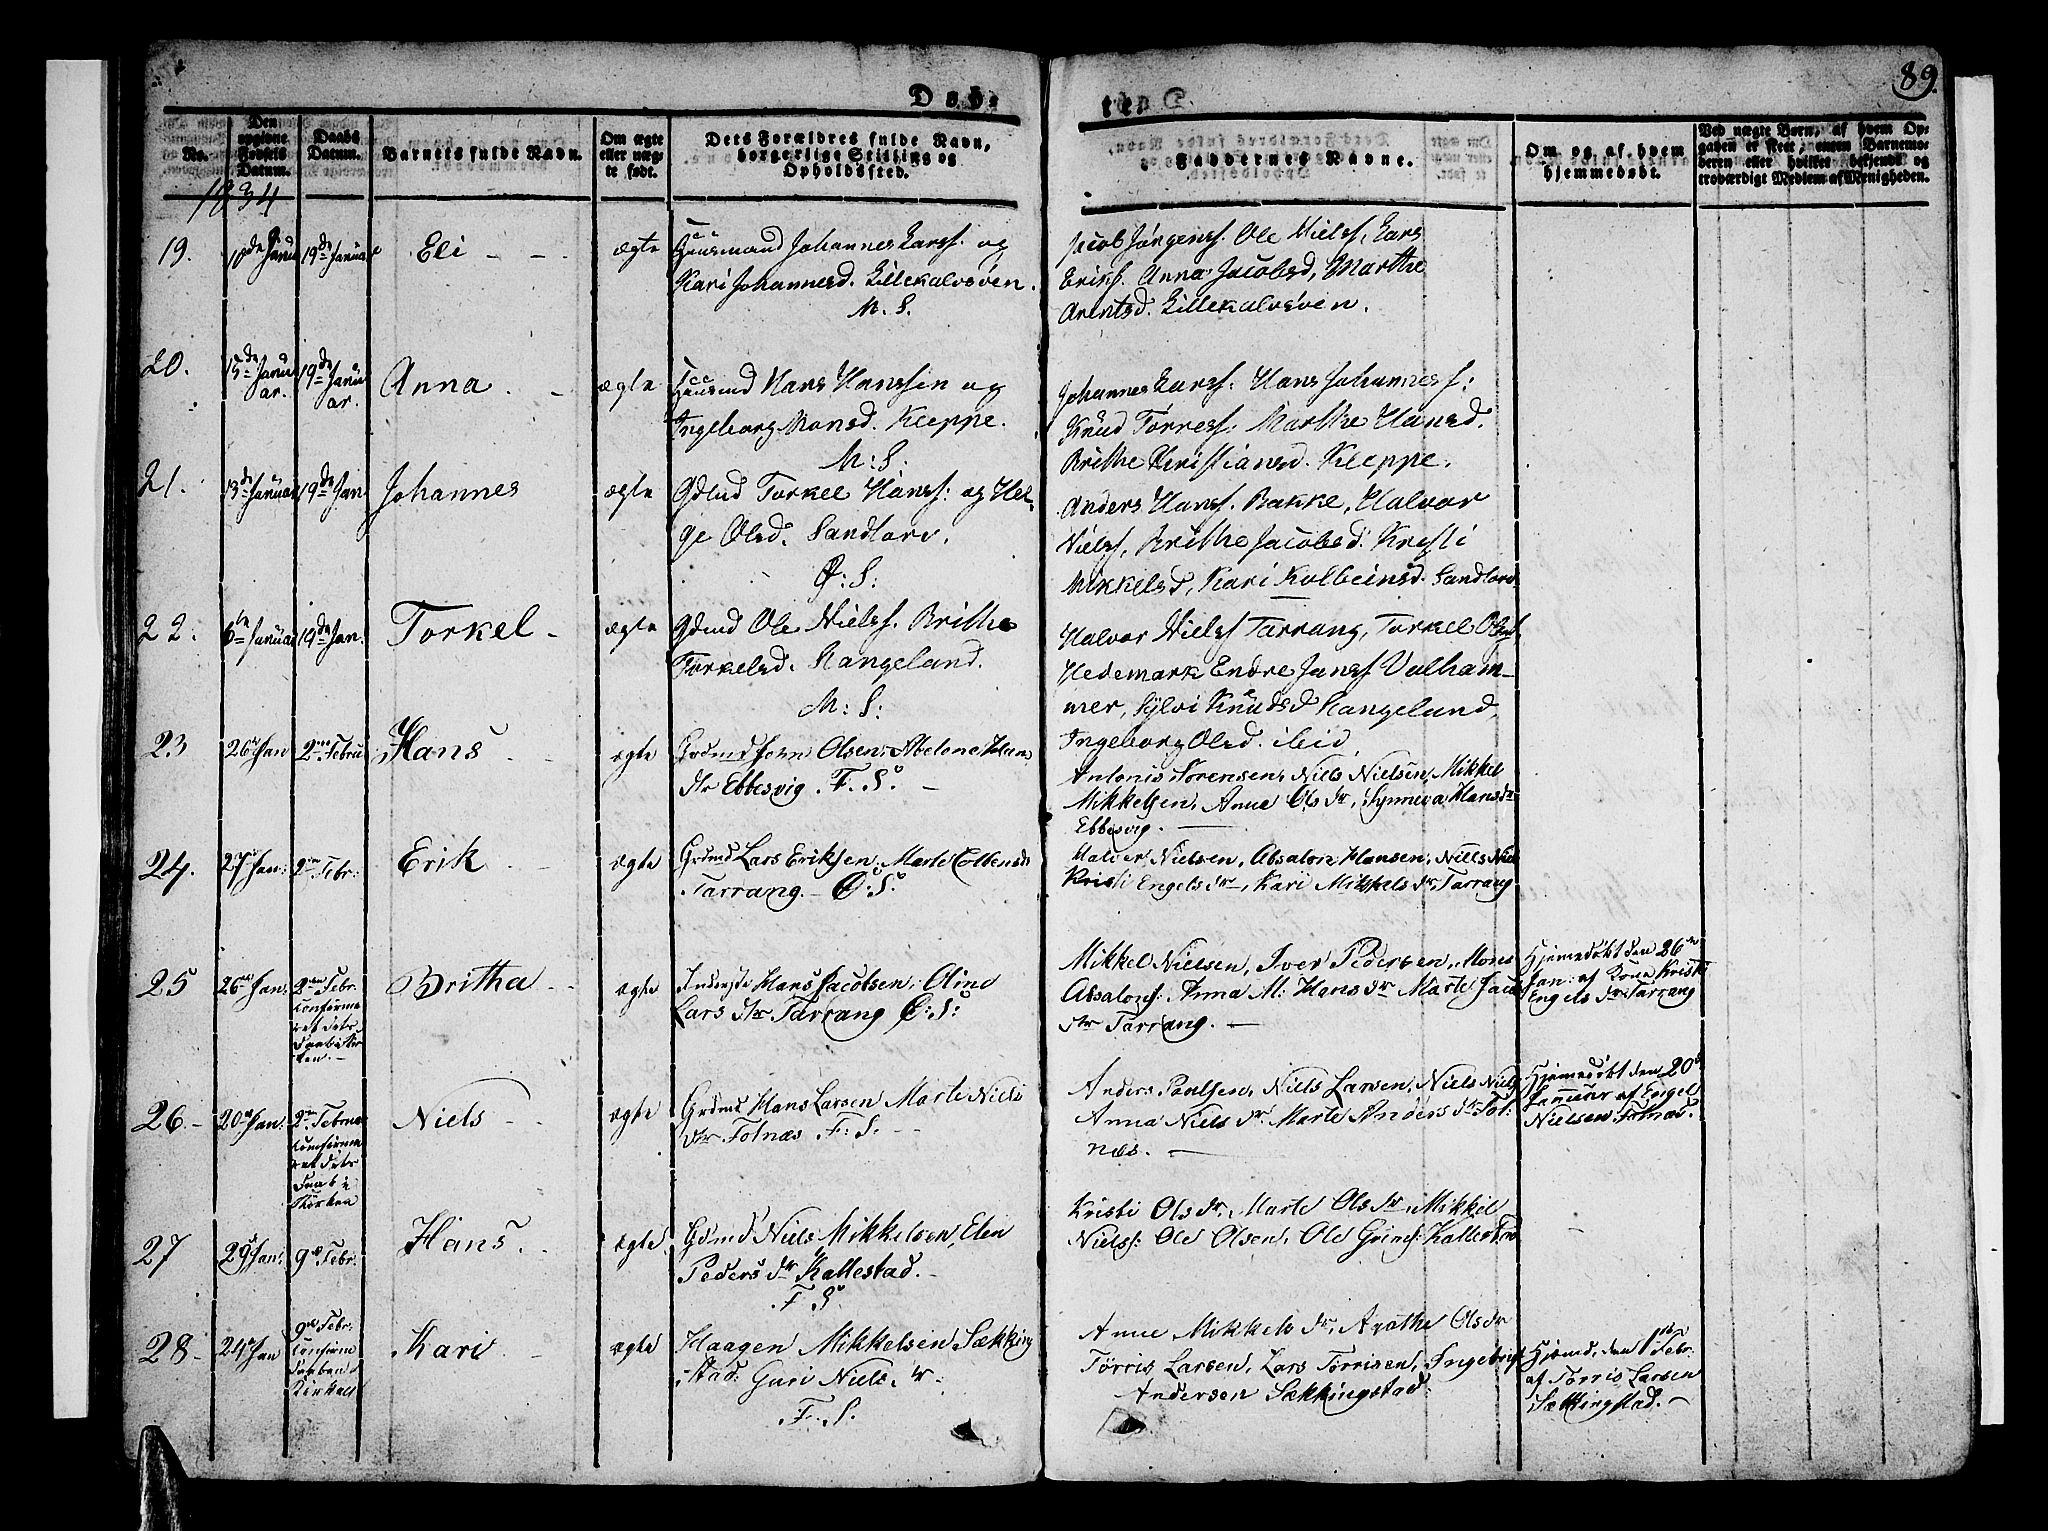 89.
Døb-
te
No.
Den opgivne Fødsels Datum.
Daabs Datum.
Barnets fulde Navn.
Om ægte eller uægte født.
Dets Forældres fulde Navn, borgerlige Stilling og Opholdssted.
Faddernes Navne.
Om og af hvem hjemmedøbt.
Ved uægte Børn, af hvem Opgaven er skeet, enten Barnemoderen eller hvilket bekjendt og troværdigt Medlem af Menigheden.
1834
19.
19de Januar
Eli
ægte
Huusmand Johannes Larss. og
Kari Johannesd. Lillekalvsøen.
M. S.
Jacob Jørgenss. Ole Nielss. Lars
Erikss. Anna Jacobsd, Marthe
Arentsd. Lillekalvsøen.
20.
15de Janu
ar.
19de Janu
ar.
Anna
ægte
Huusmd Hans Hanssen og
Ingeborg Monsd. Kleppe.
M: S:
Johannes Larss: Hans Johanness:
Knud Torress. Marthe Hansd.
Brithe Kristiansd. Kleppe.
21.
13de Januar
19de Jan
Johannes
ægte
Torkel Hanss: og Hel-
ge Olsd. Sandtorv.
Ø: S:
Anders Hanss. Bakke, Halvor
Nielss, Brithe Jacobsd. Kristi
Mikkelsd, Kari Kolbeinsd. Sandtorv
22.
6te Januar
19de Jan.
Torkel
ægte
Gdmd Ole Nielss. Brithe
Torkelsd. Hangeland.
M: S:
Halvor Nielss Tarrang, Torkel Olss.
Hedemark Endre Janss Valham-
mer, Sylvi Knudsd Hangeland,
Ingeborg Olsd. ibid.
23
26de Jan
2den Febru
Hans
ægte
Grdmd Jorn Olsen, Abelone Hans
dtr Ebbesvig. F. S.
Antonis Sørensen, Niels Nielsen, Mikkel
Mikkelsen, Anne Olsdr, Synneva Hansdr
Ebbesvig.
24.
27de Jan:
2den Febr:
Erik
ægte
Grdmd Lars Eriksen, Marte Colbensdr
Tarrang. Ø: S.
Halver Nielsen, Absalon Hansen, Niels Niels
Kristi Engelsdr, Kari Mikkelsdr, Tarrang
25
26de Jan:
2den Febr.
Confirme
ret dets
Daab i Kir
ken.
Britha
ægte
Inderste Hans Jacobsen, Oline
Larsdtr Tarrang Ø: S:
Mikkel Nielsen, Iver Pedersen, Mons
Absalons: Anna M: Hansdr Marte Jacobs
dtr Tarrang.
Hjemedøbt den 26de
Jan: af Kona Kristi
Engelsdr Tarrang
26
20de Jan:
2den Februar
Confirme
ret dets
Daab i
Kirken
Niels
ægte
Grdmd Hans Larsen Marte Niels
dtr Fotnæs F: S.
Anders Poulsen, Niels Larsen, Niels Niels
Anna Nielsdr. Marte Andersdr Fot:
næs.
Hjemedøbt den 20de
Januar af Engel
Nielsen Fotnæs.
27
29de Jan:
9de Febr:
Hans
ægte
Grdmd Niels Mikkelsen, Elen
Pedersdr Kallestad.
F. S.
Kristi Olsdr, Marte Olsdr, Mikkel
Nielss: Ole Olsen, Ole Kallestad
28
24de Jan
9de Febr:
Confirme
Daaben i
Kirken
Kari
ægte
Haagen Mikkelsen Sækking
stad: Guri Nielsdr.
F. S.
Anne Mikkelsdr, Agathe Olsdr
Tørris Larsen, Lars Tørrisen, Ingebrigt
Andersen Sækkingstad.
Hjemd, den 1ste Febr:
af Tørris Larsen
Sækkingstad.